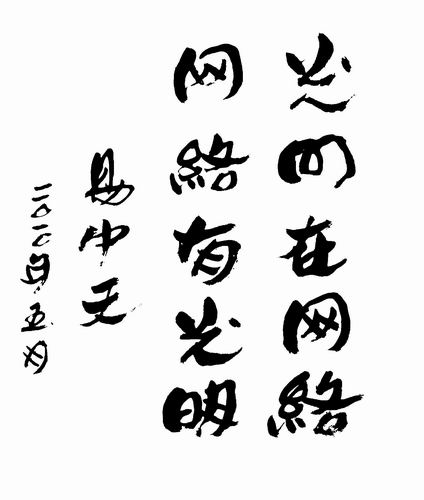 光明在网絡
网絡有光明
易中天
二〇一〇年五月